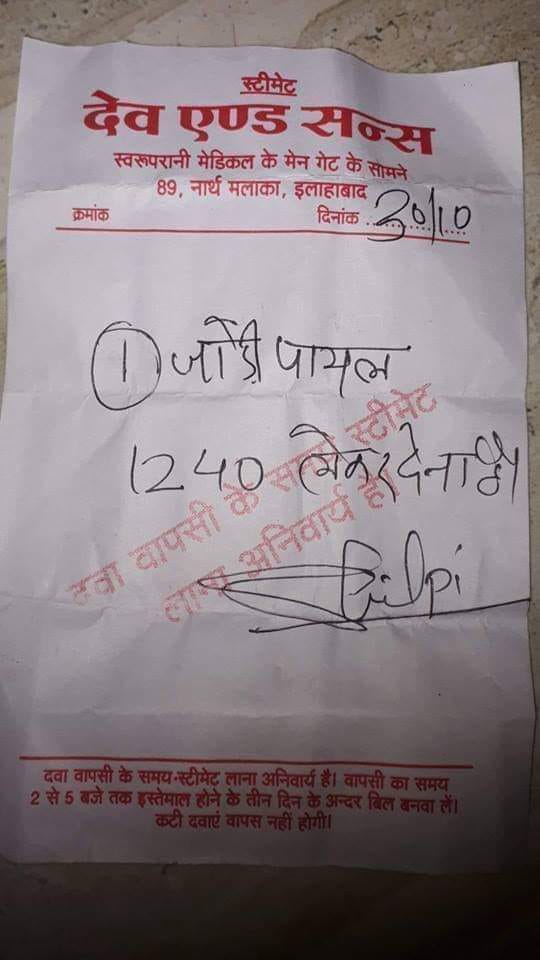 स्टीमेट
देव एण्ड सन्स
स्वरूपरानी मेडिकल के मेन गेट के सामने
89, नार्थ मलाका, इलाहाबाद
क्रमांक दिनांक 30/10
① जोडी पायल
1240 लेकर देना है।
दवा वापसी के समय स्टीमेट
लाना अनिवार्य है।
Shilpi
दवा वापसी के समय-स्टीमेट लाना अनिवार्य है। वापसी का समय
2 से 5 बजे तक इस्तेमाल होने के तीन दिन के अन्दर बिल बनवा लें।
कटी दवाएं वापस नहीं होगी।